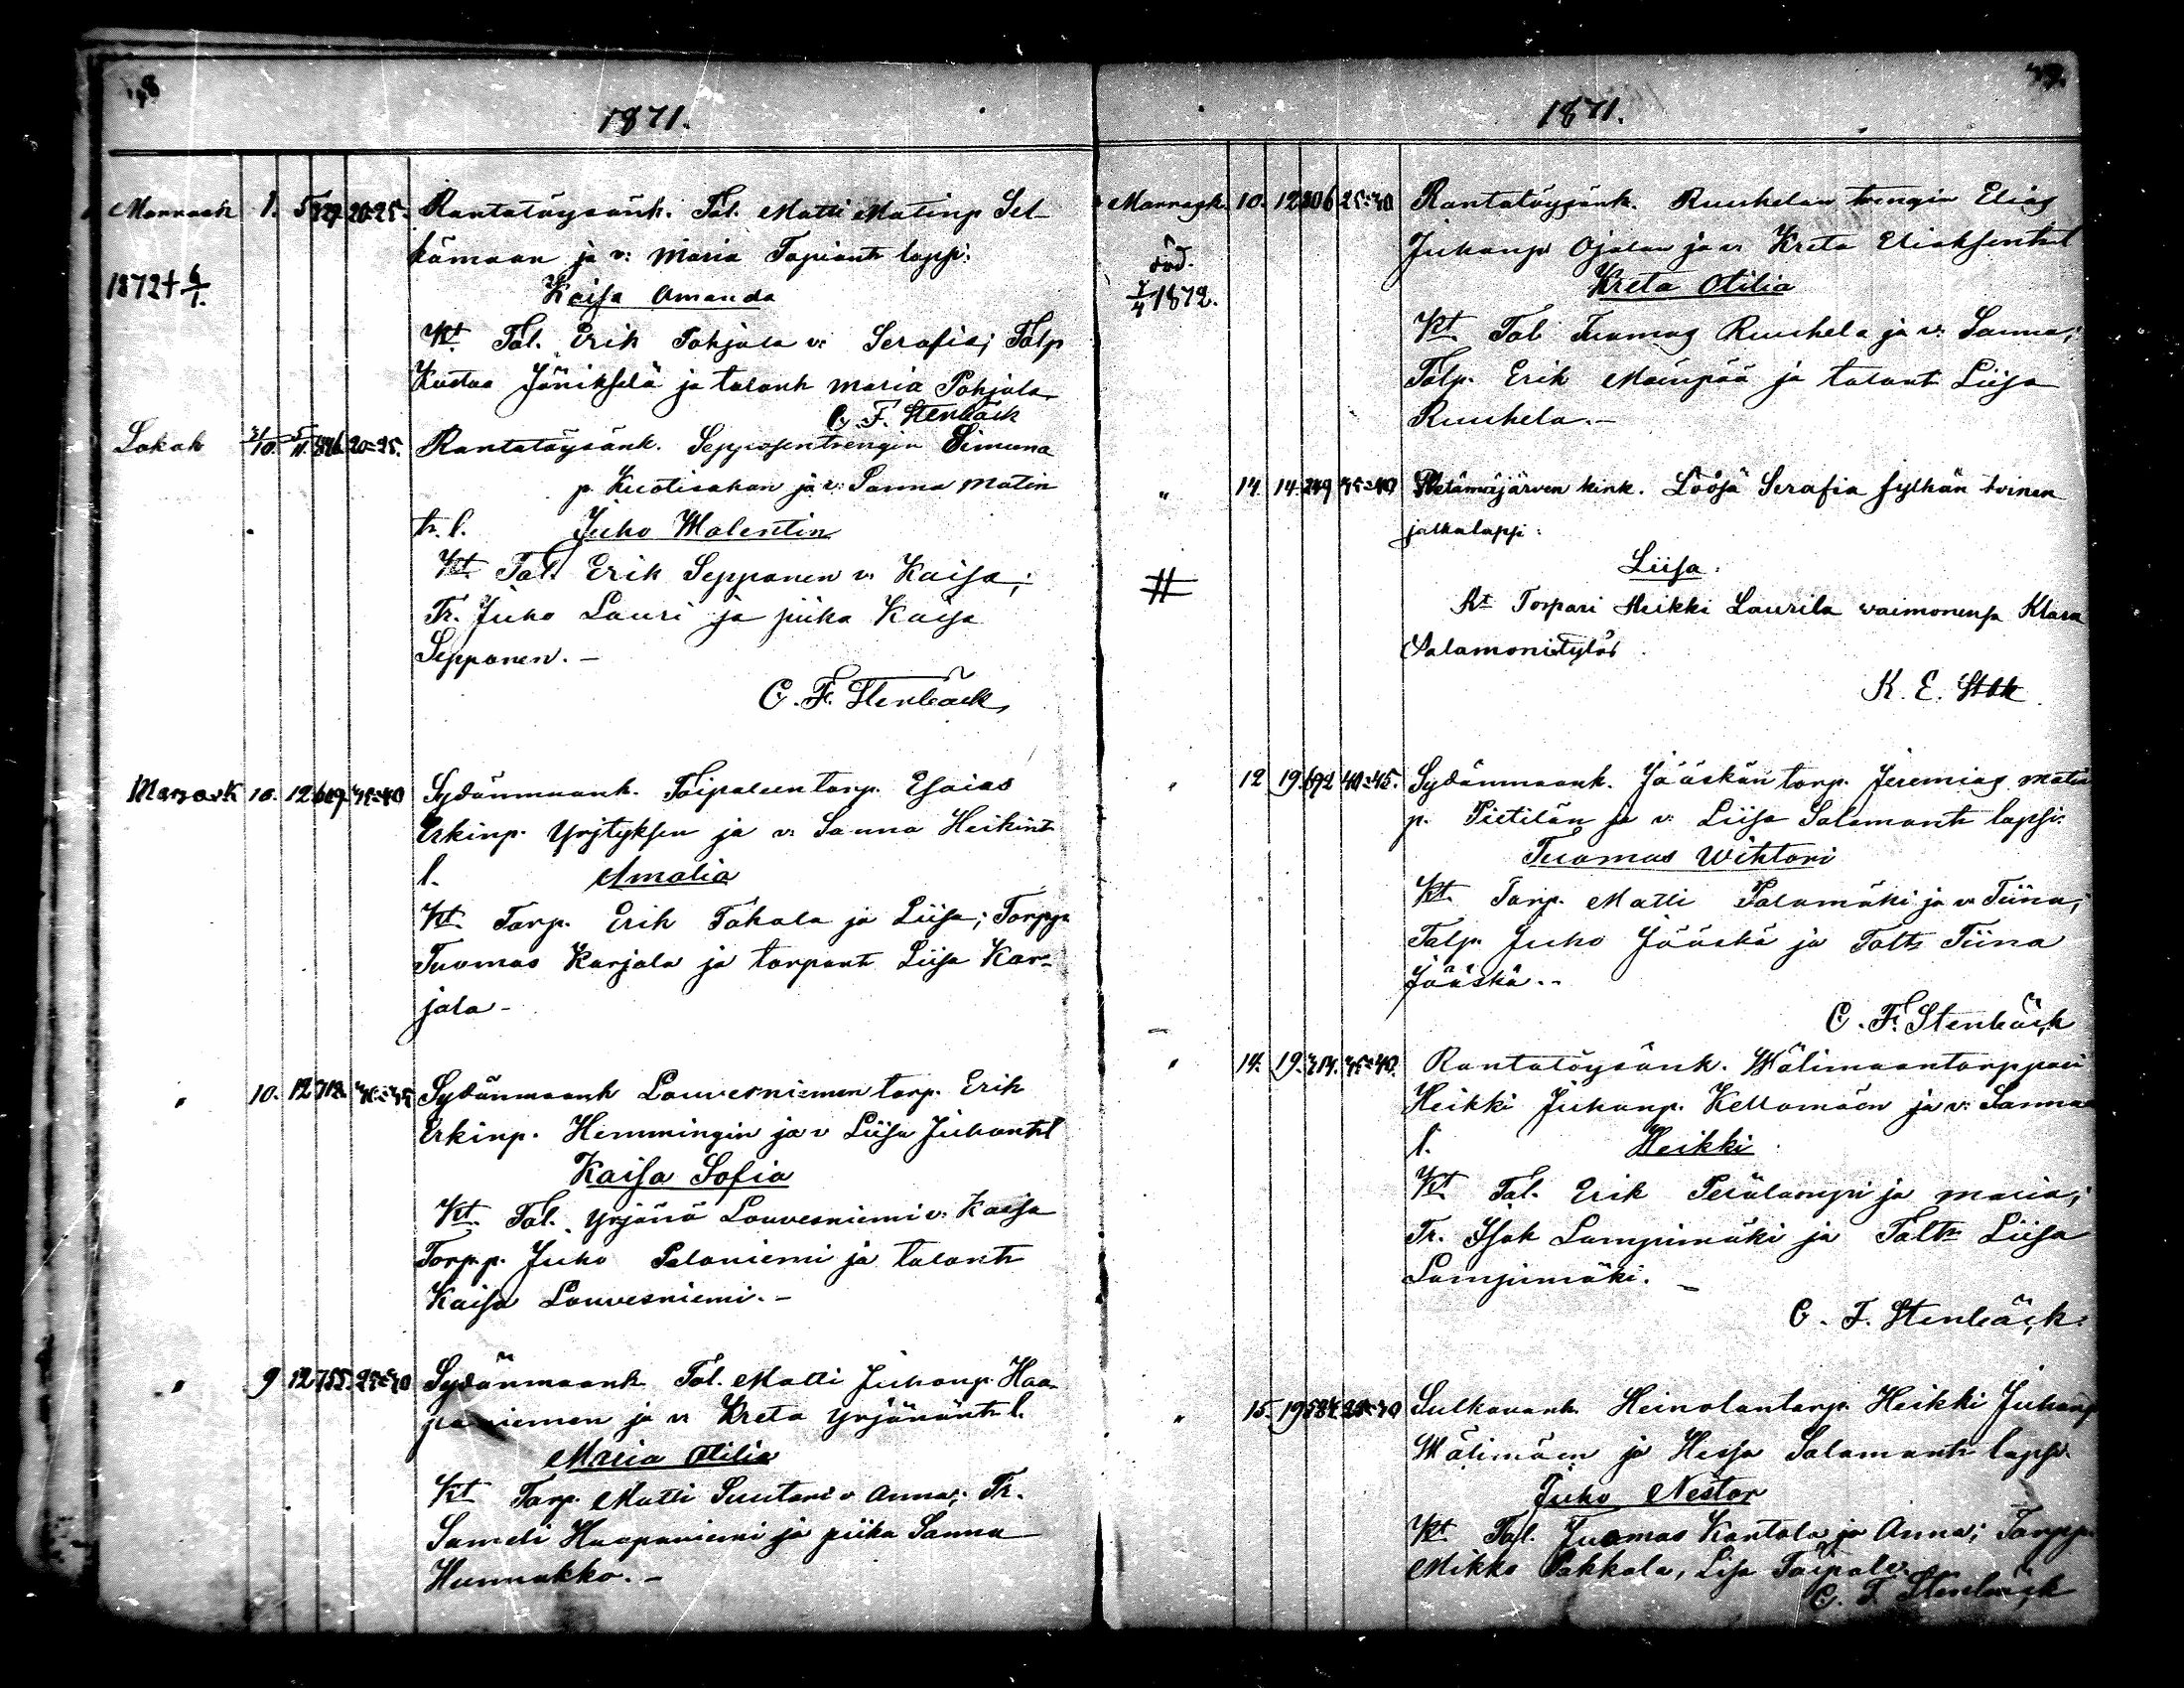 1871.
Marrask 1. 5 20=25. Rantatöysänk. Tal. Matti Matinp Sel-
kämaan ja v: Maria Tapiontr laps:
1872 + 6/1. Kaisa Amanda
Kt Tal. Erik Pohjala v: Serafia; Talp
Kustaa Jänikselä ja talontr Maria Pohjala
C. F. Stenbäck
Lokak 31/10. 5/11. 20=25. Rantatöysänk. Sepposentrengin Simuna
p. Kuotisahan ja v: Sanna Matin
tr. l. Juho Walentin
Kt Tal. Erik Sepponen v: Kaisa;
Tr. Juho Lauri ja piika Kaisa
Sepponen. -
C. F. Stenbäck
Marrask 10. 12. 35=40 Sydänmaank. Taipaleentorp. Esaias
Erkinp. Yrjtyksen ja v: Sanna Heikintr
l. Amalia
Kt Torp. Erik Tokola ja Liisa; Torpp
Tuomas Karjala ja torpantr Liisa Kar=
jala -
" 10. 12 712. Sydänmaank Louvesniemen torp. Erik
Erkinp. Hemmingin ja v Liisa Juhontrl
Kaisa Sofia
Kt. Tal. Yrjänä Louvesniemi v: Kaisa
Torpp. Juho Salaniemi ja talontr
Kaisa Louvesniemi. -
" 9 12 755. Sydänmaank Tal. Matti Juhanp. Haa-
paniemen ja v: Kreta Yrjänäntr l.
Maria Otilia
Kt Torp. Matti Suutari v Anna; Tr.
Sameli Haapaniemi ja piika Sanna
Hunnakko. -
49.
1871.
Marrask. 10. 12 306 25=30 Rantatöysänk. Ruuhelan trengin Elias
Juhanp Ojalan ja v: Kreta Eliaksentrl
död.
1872. Kreta Otilia
Kt Tal Tuomas Ruuhela ja v: Sanna;
Talp. Erik Mäenpää ja talontr Liisa
Ruuhela. -
" 14 14. 249 35=40 Hetämäjärven kink. Löösä Serafia Sylkän toinen
jalkalapsi:
# Liisa.
Kt Torpari Heikki Laurila waimonensa Klara
Salamonintytär
K. E. Stbk
" 12 19. 692 40=45. Sydänmaank. Jääskän torp. Jeremias Matin
p. Pietilän ja v: Liisa Salamontr lapsi:
Tuomas Wihtori
Kt. Torp. Matti Palomäki ja v: Tiina;
Talp. Juho Jääskä ja Taltr Tiina
Jääskä. -
C. F. Stenbäck
" 14. 19. 35=40. Rantatöysänk. Wälimaantorppari
Heikki Juhanp. Kellomäen ja v: Sanna
l. Heikki
Kt Tal. Erik Perälampi ja Maria;
Tr. Isak Lampimäki ja Taltr Liisa
Lampimäki. -
C. F. Stenbäck
" 15. 19 Sulkavank. Heinolantorp. Heikki Juhanp
Wälimäen ja Hessa Salamontr laps:
Juho Nestor
Kt Tal. Tuomas Kantola ja Anna; Torpp.
Mikko Pakkala, Lisa Taipale.
C. F. Stenbäck